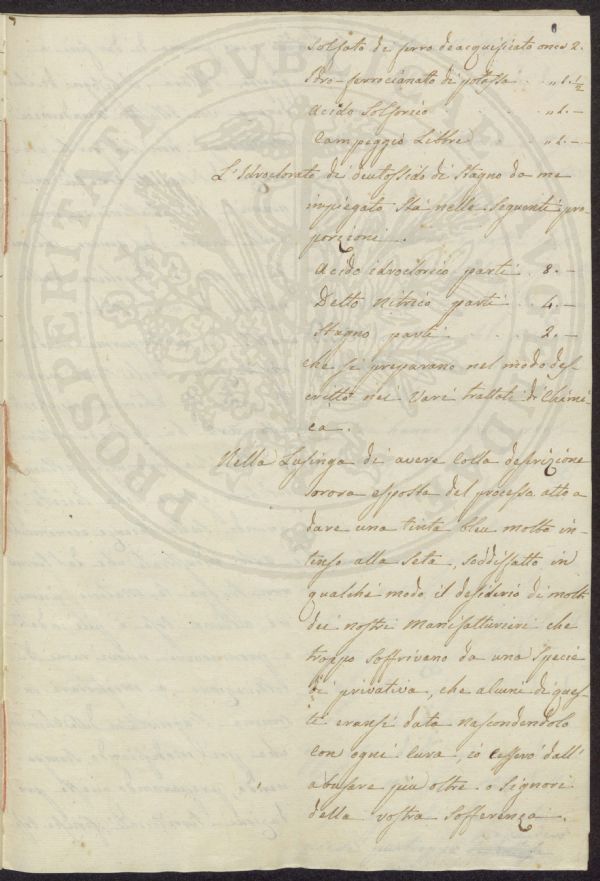 solfato di ferro deacquificato once 2.
Idro-ferrocianato di potassa . . " 1. 1/2
Acido Solforico . . " 1. –
Campeggio Libbre . . " 1. –
L'Idroclorato di deutossido di Stagno da me
impiegato sta nelle seguenti pro-
porzioni.
Acido idroclorico parti . 8. –
Detto Nitrico parti . 4. –
Stagno parti . . 2. –
che si preparano nel modo des-
critto nei varj trattati di Chimi-
ca.
Nella Lusinga di avere colla descrizione
sovra esposta del processo atto a
dare una tinta bleu molto in-
tenso alla Seta, soddisfatto in
qualche modo il desiderio di molti
dei nostri Manifatturieri che
troppo soffrivano da una specie
di privativa, che alcuni di ques-
ti eransi data nascondendolo
con ogni cura, io cesserò dall'
abusare più oltre o Signori
della vostra sofferenza.
PROSPERITATI PUBLICAE AUGENDAE